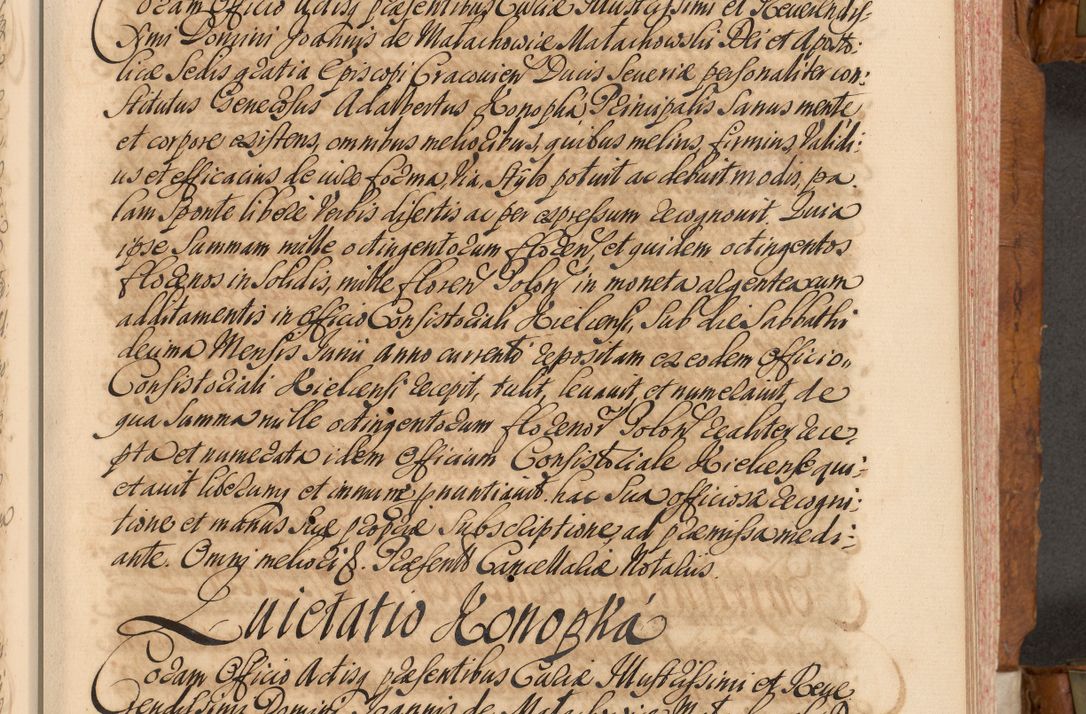 Coram Officio Actisq præsentibus Curiæ Illustrissimi et Reverendis-
simi Domini Joannis de Małachowice Małachowski Dei et Aposto:
licæ Sedis gratia Episcopi Cracovien Ducis Severiæ personaliter con:
stitutus Generosus Adalbertus Konopká Principalis sanus mente
et corpore existens, omnibus melioribus, quibus melius, firmius, validi:
us et efficacius de iure forma, via, stÿlo potuit ac debuit modis, pa
lam sponte liberè verbis disertis ac per expressum recognovit Quia
ipse Summam mille octingentorum floren, et quidem octingentos
florenos in solidis, mille floren Polon in moneta argentea cum
additamentis in Officio Consistoriali Kielcensi, sub die Sabbathi
decima Mensis Junii anno currenti repositam ex eodem Officio
Consistoriali Kielcensi recepit, tulit, levavit, et numeravit, de
qua Summa mille octingentorum florenor Polon realiter rece:
pta et numerata idem Officium Consistoriale Kielcense qui:
etavit liberumq et immune pnuntiavit. hac sua officiosa recogni:
tione et manus suæ propriæ subscriptione, ad præmissa medi:
ante. Omni meliori &. Præsentib Cancellariæ Notariis.
Quietatio Konopká
Coram Officio Actisq præsentibus Curiæ Illustrissimi et Reve
rendissimi Domini Joannis de Małachowice